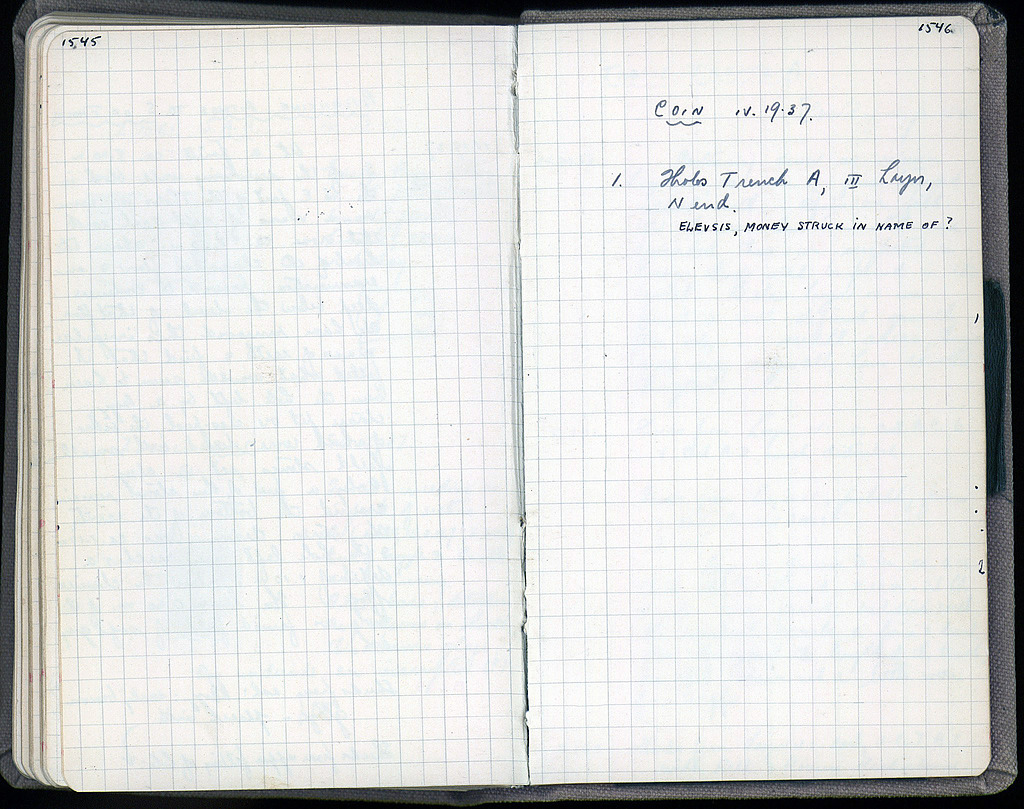 1545
1546
COIN IV.19.37.
1. Tholos Trench A, III Layer,
N end.
ELEVSIS, MONEY STRUCK IN NAME OF ?
1
2